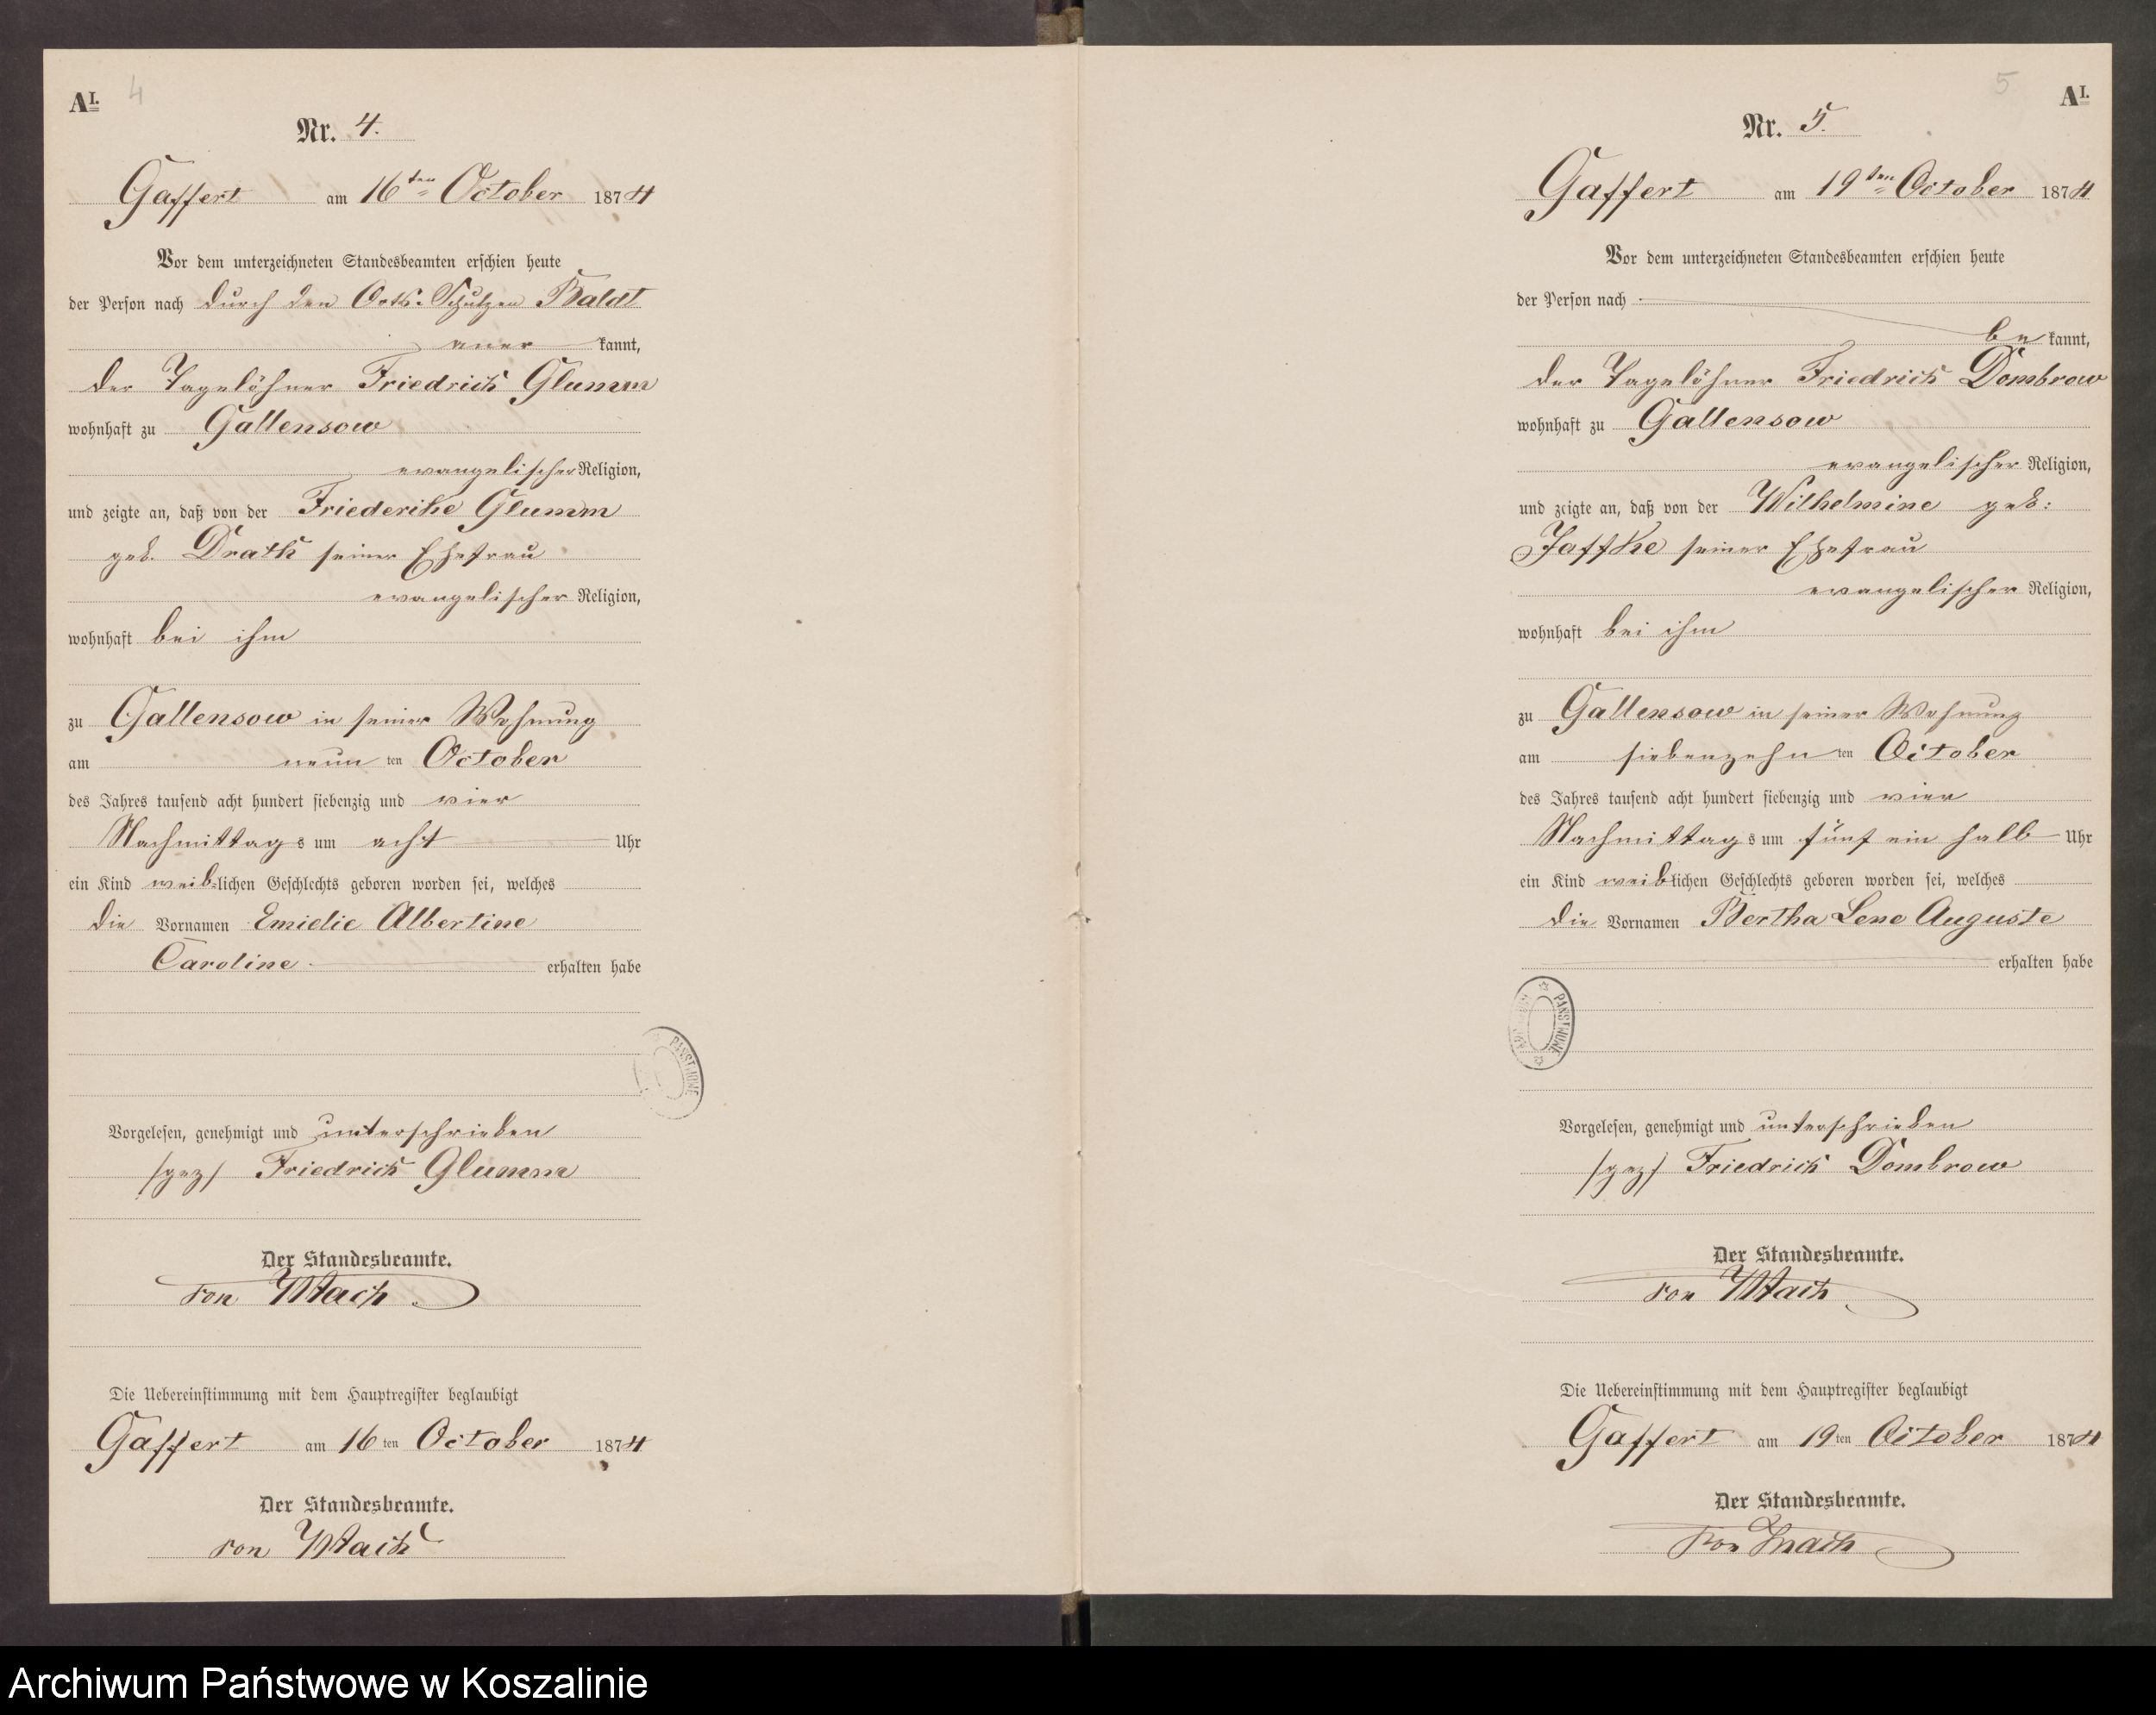 AI. 4
Nr. 4.
Gaffert am 16ten October 1874
Vor dem unterzeichneten Standesbeamten erschien heute
der Person nach durch den Orts-Schulzen Baldt
aner kannt,
der Tagelöhner Friedrich Glumm
wohnhaft zu Gallensow
evangelischer Religion,
und zeigte an, daß von der Friederike Glumm
geb. Drath seiner Ehefrau
evangelischer Religion,
wohnhaft bei ihm
zu Gallensow in seiner Wohnung
am neun ten October
des Jahres tausend acht hundert siebenzig und vier
Nachmittags um acht Uhr
ein Kind weiblichen Geschlechts geboren worden sei, welches
die Vornamen Emielie Albertine
Caroline erhalten habe
PAŃSTWOWE
Vorgelesen, genehmigt und unterschrieben
/gez/ Friedrich Glumm
Der Standesbeamte.
von Mach
Die Uebereinstimmung mit dem Hauptregister beglaubigt
Gaffert am 16ten October 1874
Der Standesbeamte.
von Mach
5 AI.
Nr. 5.
Gaffert am 19ten October 1874
Vor dem unterzeichneten Standesbeamten erschien heute
der Person nach
be kannt,
der Tagelöhner Friedrich Dombrow
wohnhaft zu Gallensow
evangelischer Religion,
und zeigte an, daß von der Wilhelmine geb:
Jaffke seiner Ehefrau
evangelischer Religion,
wohnhaft bei ihm
zu Gallensow in seiner Wohnung
am siebenzehn ten October
des Jahres tausend acht hundert siebenzig und vier
Nachmittags um fünf ein halb Uhr
ein Kind weiblichen Geschlechts geboren worden sei, welches
die Vornamen Bertha Lene Auguste
erhalten habe
PAŃSTWOWE
Vorgelesen, genehmigt und unterschrieben
/gez/ Friedrich Dombrow
Der Standesbeamte.
von Mach
Die Uebereinstimmung mit dem Hauptregister beglaubigt
Gaffert am 19ten October 1874
Der Standesbeamte.
von Mach
Archiwum Państwowe w Koszalinie